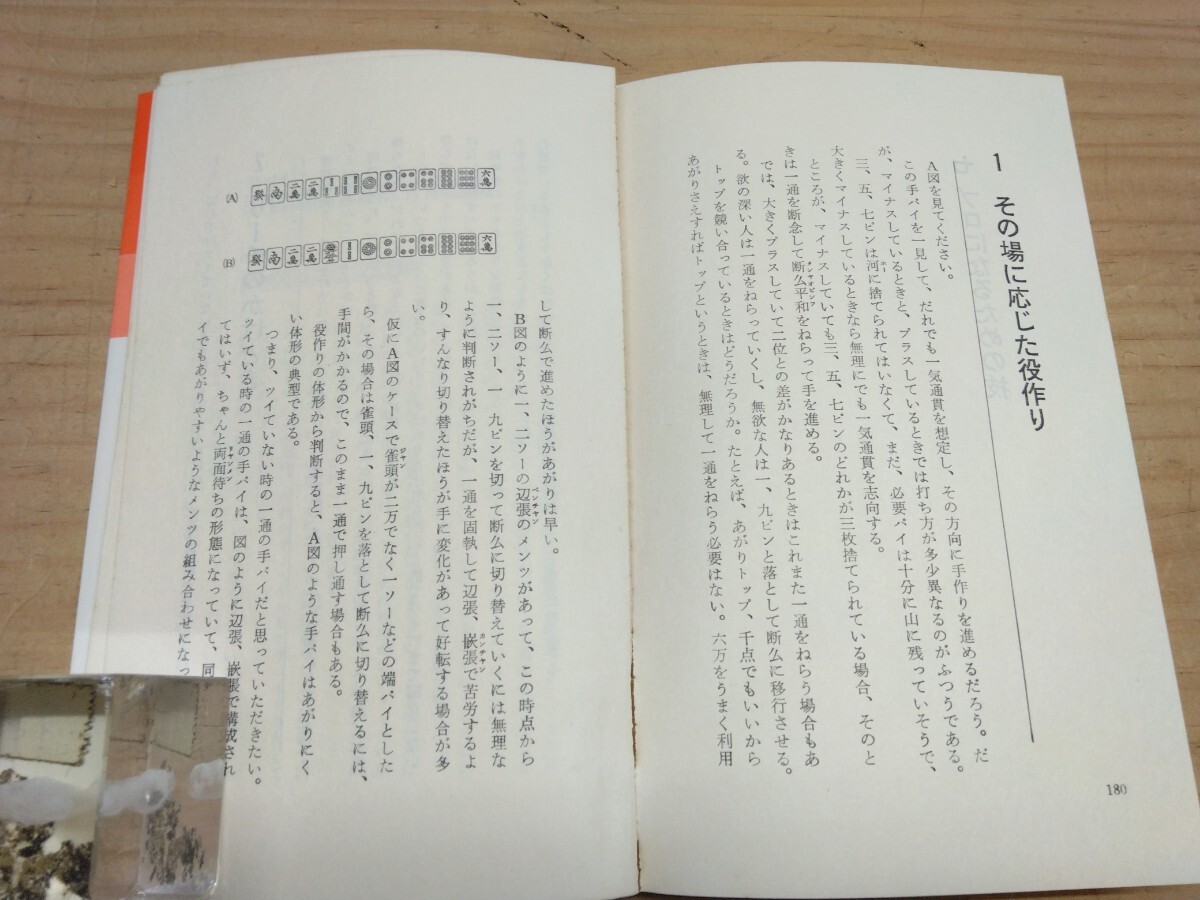 1 その場に応じた役作り
A図を見てください。
この手パイを一見して、だれでも一気通貫を想定し、その方向に手作りを進めるだろう。だ
が、マイナスしているときと、プラスしているときでは打ち方が多少異なるのがふつうである。
三、五、七ピンは河に捨てられてはいなくて、まだ、必要パイは十分に山に残っていそうで、
大きくマイナスしているときなら無理にでも一気通貫を志向する。
ところが、マイナスしていても三、五、七ピンのどれかが三枚捨てられている場合、そのと
きは一通を断念して断么平和をねらって手を進める。
では、大きくプラスしていて二位との差がかなりあるときはこれまた一通をねらう場合もあ
る。欲の深い人は一通をねらっていくし、無欲な人は一、九ピンと落として断么に移行させる。
トップを競い合っているときはどうだろうか。たとえば、あがりトップ、千点でもいいから
あがりさえすればトップというときは、無理して一通をねらう必要はない。六万をうまく利用
180
(A)
(B)
して断么で進めたほうがあがりは早い。
B図のように一、二ソーの辺張のメンツがあって、この時点から
一、二ソー、一、九ピンを切って断么に切り替えていくには無理な
ように判断されがちだが、一通を固執して辺張、嵌張で苦労するよ
り、すんなり切り替えたほうが手に変化があって好転する場合が多
い。
仮にA図のケースで雀頭が二万でなく一ソーなどの端パイとした
ら、その場合は雀頭、一、九ピンを落として断么に切り替えるには、
手間がかかるので、このまま一通で押し通す場合もある。
役作りの体形から判断すると、A図のような手パイはあがりにく
い体形の典型である。
つまり、ツイていない時の一通の手パイだと思っていただきたい。
ツイている時の一通の手パイは、図のように辺張、嵌張で構成され
てはいず、ちゃんと両面待ちの形態になっていて、同
イでもあがりやすいようなメンツの組み合わせになっ